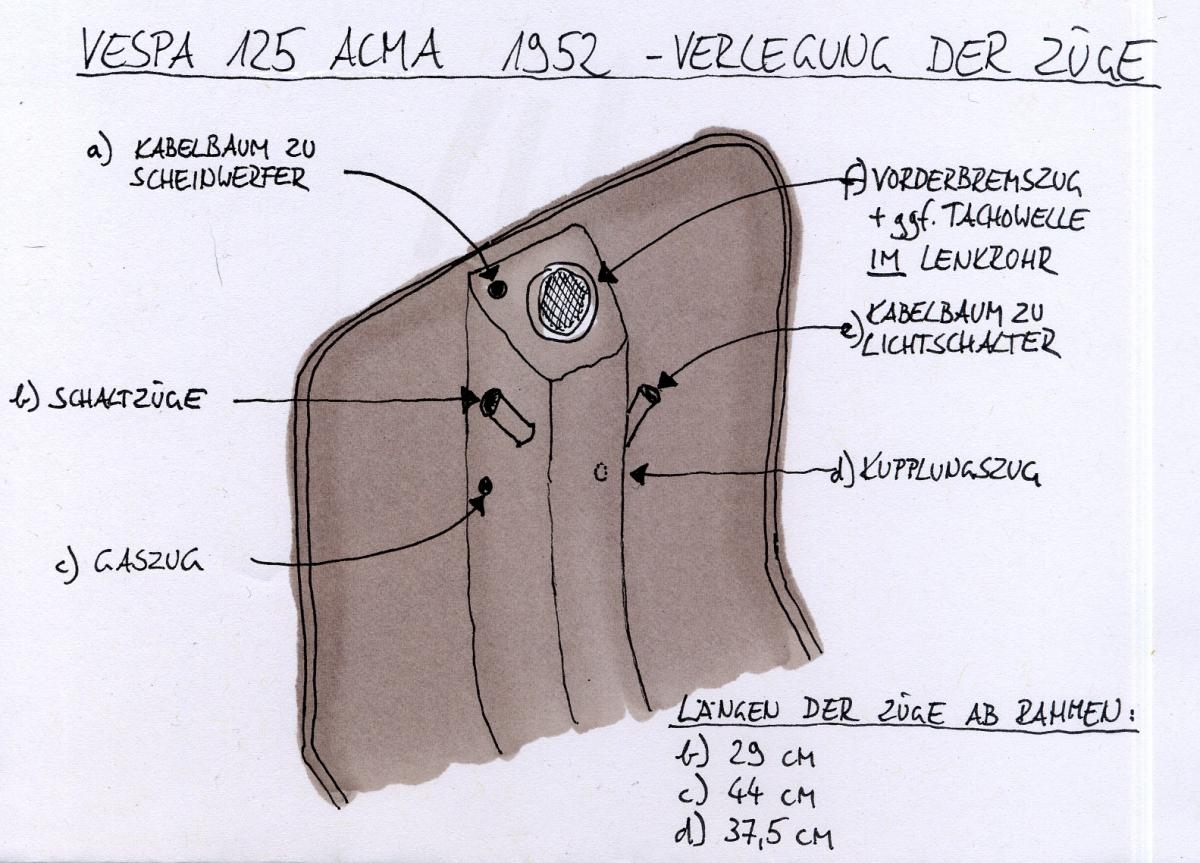 VESPA 125 ACMA 1952 - VERLEGUNG DER ZÜGE
a) KABELBAUM ZU
SCHEINWERFER
f) VORDERBREMSZUG
+ ggf. TACHOWELLE
IM LENKROHR
e) KABELBAUM ZU
LICHTSCHALTER
b) SCHALTZÜGE
d) KUPPLUNGSZUG
c) GASZUG
LÄNGEN DER ZÜGE AB RAHMEN:
b) 29 CM
c) 44 CM
d) 37,5 CM